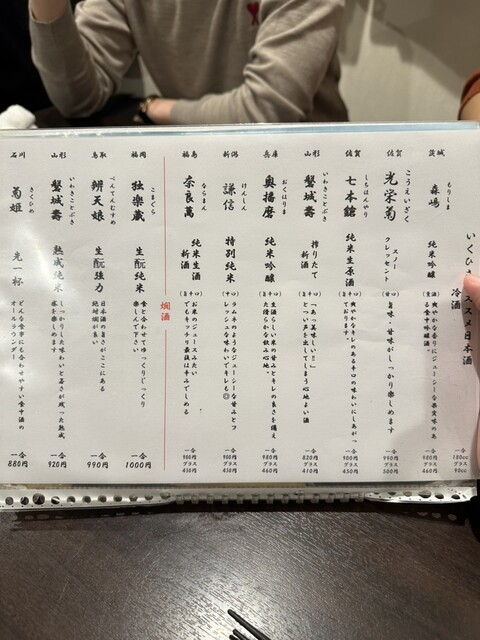 いくひ
ススメ日本酒
冷酒
一合 180cc
グラス 90cc
茨城
もりしま
森嶋
純米吟醸
(生酒)
爽やかな香りにジューシーな果実味のあ
る食中吟醸酒
一合 980円
グラス 460円
佐賀
こうえいぎく
光栄菊
スノー
クレッセント
(甘口)
旨味・甘味がしっかり楽しめます
一合 990円
グラス 500円
佐賀
しちほんやり
七本鎗
純米生原酒
(旨辛口)
爽やかなキレのある辛口の味わいにしあがっ
ております。
一合 900円
グラス 450円
山形
いわきことぶき
磐城壽
搾りたて
新酒
(旨口)
「あっ美味しい!」
とつい声を出してしまう心地よい酒
一合 820円
グラス 410円
兵庫
おくはりま
奥播磨
純米吟醸
(旨辛口)
生酒らしい米の甘みとキレの良さを備え
た滑らかな飲み心地。
一合 980円
グラス 460円
新潟
けんしん
謙信
特別純米
(中口)
ラムネのようなジューシーな甘みとフ
レッシュな味わいでキレも◎
一合 900円
グラス 450円
福島
ならまん
奈良萬
純米生酒
新酒
(旨辛口)
お米のジュースみたい
でもキッチリ最後は辛みでしめる
一合 900円
グラス 450円
燗酒
福岡
こまぐら
独楽蔵
生酛純米
食と合わせてゆっくりじっくり
楽しんで下さい
一合
1000円
鳥取
べんてんむすめ
辨天娘
生酛強力
日本酒の旨さがここにある
絶対燗が良い
一合
990円
山形
いわきことぶき
磐城壽
熟成純米
しっかりした味わいと若さが残った熟成
感を楽しめます
一合
920円
石川
きくひめ
菊姫
先一杯
どんな食事にも合わせやすい食中酒の
オールラウンダー
一合
880円